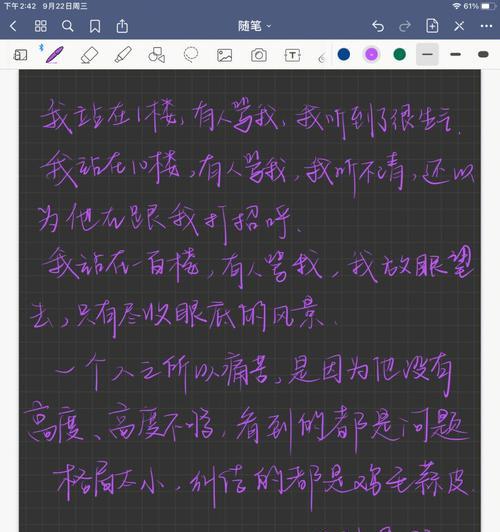 下午2:42 9月22日周三
61%
随笔
我站在1楼,有人骂我,我听到了很生气.
我站在10楼,有人骂我,我听不清,还以
为他在跟我打招呼.
我站在一百楼,有人骂我,我放眼望
去,只有尽收眼底的风景.
一个人之所以痛苦,是因为他没有
高度、高度不够,看到的都是问题
格局太小,纠结的都是鸡毛蒜皮